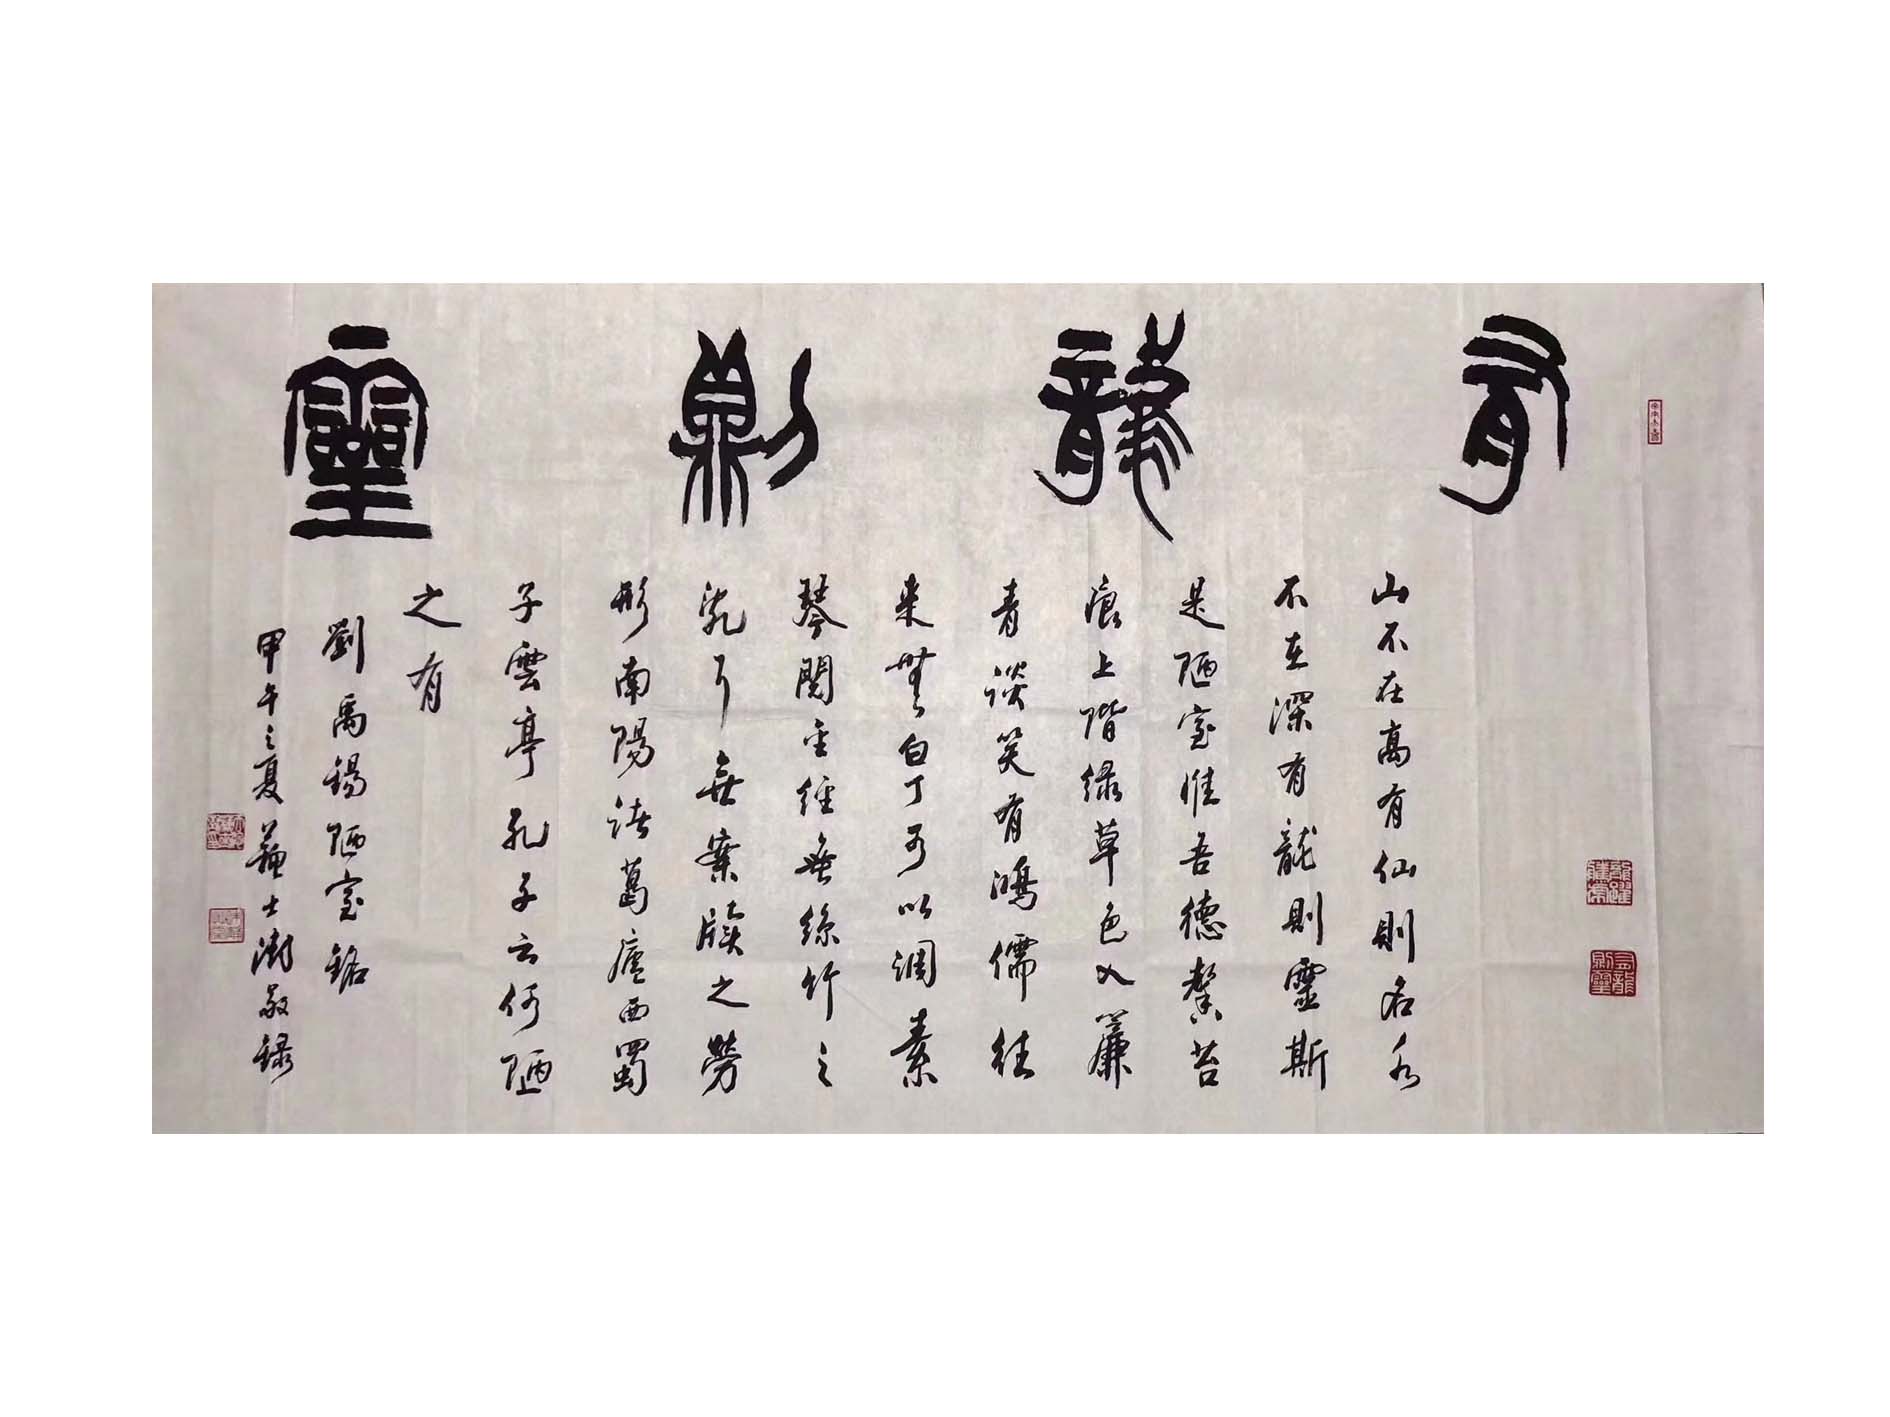 有龍則靈
山不在高有仙則名水
不在深有龍則靈斯
是陋室惟吾德馨苔
痕上階緑草色入簾
青談笑有鴻儒往
来無白丁可以調素
琴閱金經無絲竹之
亂耳無案牘之勞
形南陽諸葛廬西蜀
子雲亭孔子云何陋
之有
劉禹錫陋室銘
甲午之夏蘇士澍敬録
有龍則靈